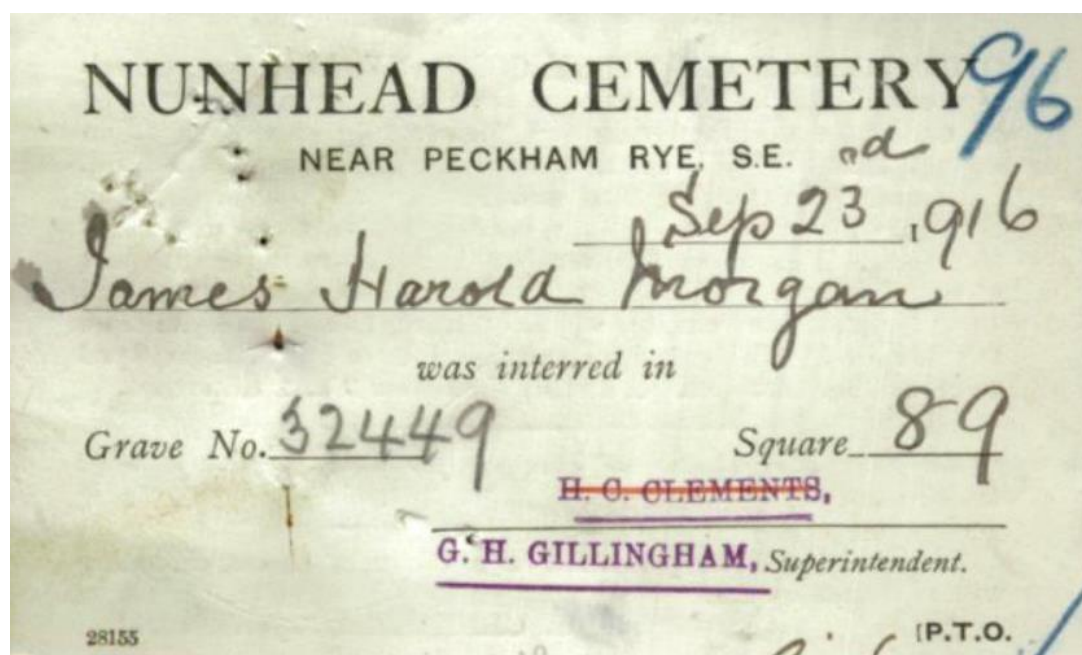 NUNHEAD CEMETERY 96
NEAR PECKHAM RYE, S.E.
Sep 23rd 1916
James Harold Morgan
was interred in
Grave No. 32449 Square 89
H. C. CLEMENTS,
G. H. GILLINGHAM, Superintendent.
28155 [P.T.O.